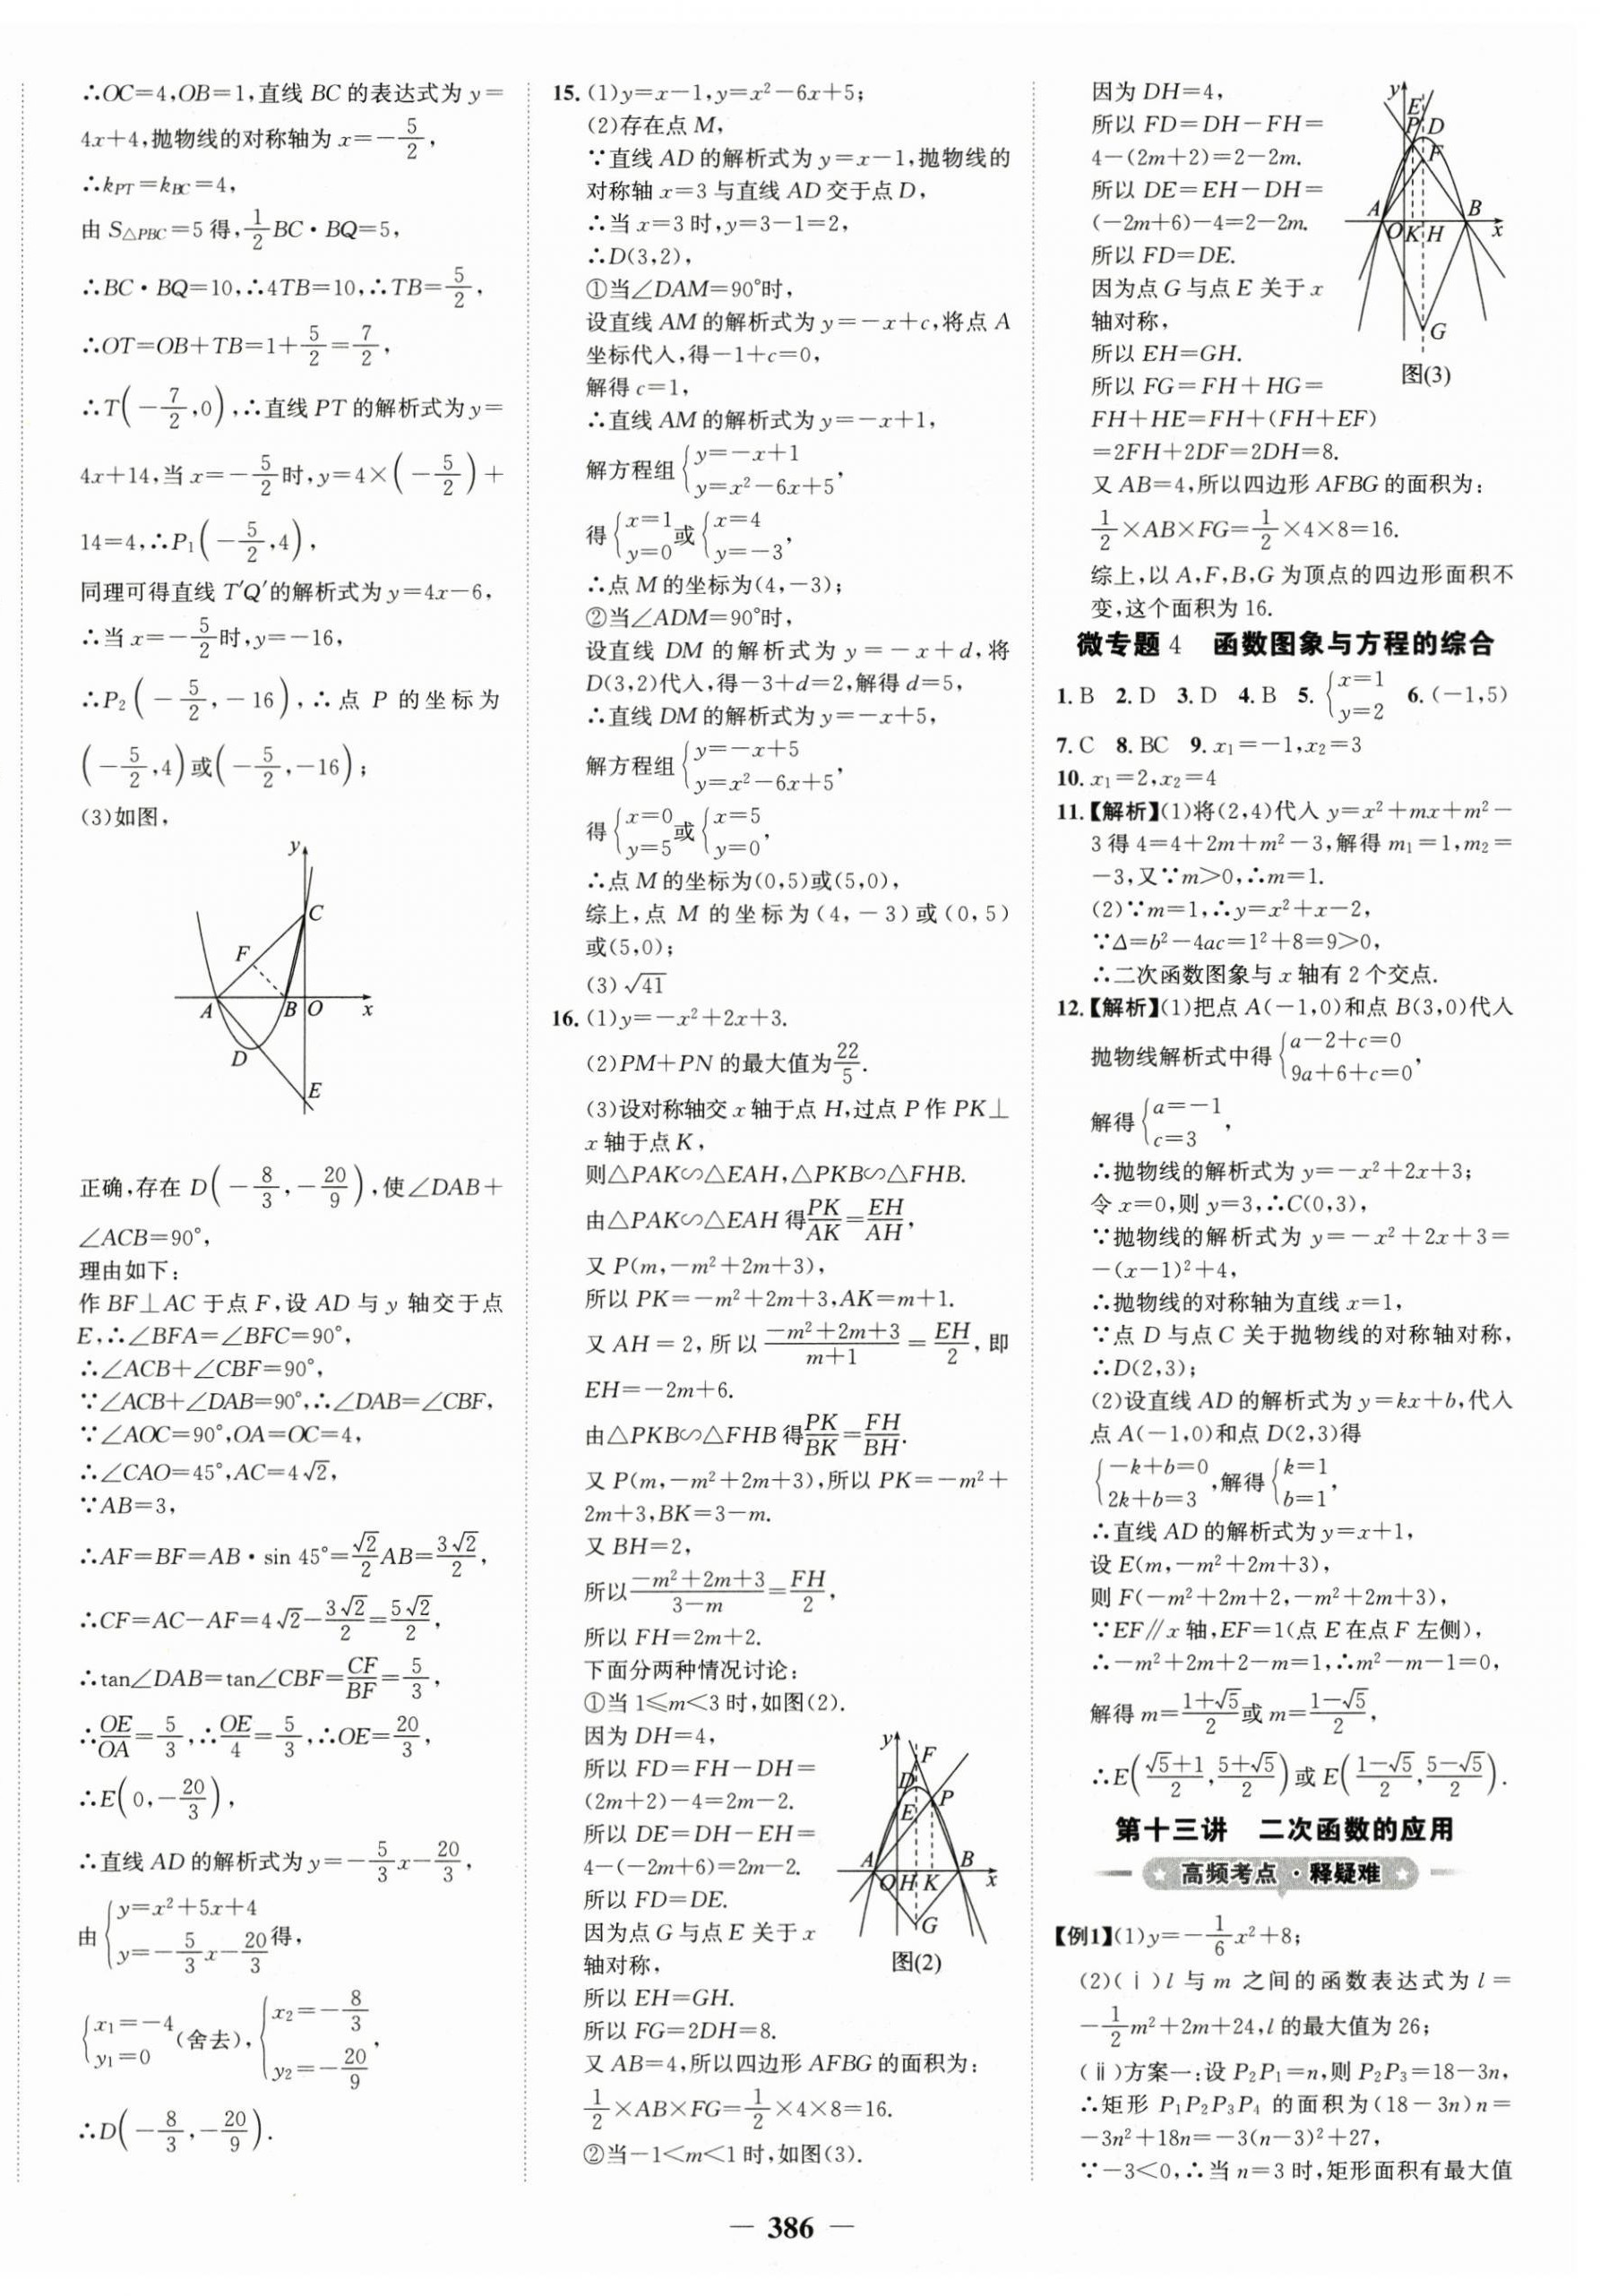 ∴OC=4,OB=1,直线 BC 的表达式为 y=
4x+4,抛物线的对称轴为 x=-5/2,
∴k_PT=k_BC=4,
由 S△PBC=5 得,1/2 BC·BQ=5,
∴BC·BQ=10,∴4TB=10,∴TB=5/2,
∴OT=OB+TB=1+5/2=7/2,
∴T(-7/2,0),∴直线 PT 的解析式为 y=
4x+14,当 x=-5/2时,y=4×(-5/2)+
14=4,∴P₁(-5/2,4),
同理可得直线 T′Q′的解析式为 y=4x-6,
∴当 x=-5/2时,y=-16,
∴P₂(-5/2,-16),∴点 P 的坐标为
(-5/2,4)或(-5/2,-16);
(3)如图,
y
C
F
A
B
O
x
D
E
正确,存在 D(-8/3,-20/9),使∠DAB+
∠ACB=90°,
理由如下:
作 BF⊥AC 于点 F,设 AD 与 y 轴交于点
E,∴∠BFA=∠BFC=90°,
∴∠ACB+∠CBF=90°,
∵∠ACB+∠DAB=90°,∴∠DAB=∠CBF,
∵∠AOC=90°,OA=OC=4,
∴∠CAO=45°,AC=4√2,
∵AB=3,
∴AF=BF=AB·sin 45°=√2/2 AB=3√2/2,
∴CF=AC-AF=4√2-3√2/2=5√2/2,
∴tan∠DAB=tan∠CBF=CF/BF=5/3,
∴OE/OA=5/3,∴OE/4=5/3,∴OE=20/3,
∴E(0,-20/3),
∴直线 AD 的解析式为 y=-5/3 x-20/3,
由{y=x²+5x+4
y=-5/3 x-20/3得,
{x₁=-4
y₁=0(舍去),{x₂=-8/3
y₂=-20/9,
∴D(-8/3,-20/9).
15.(1)y=x-1,y=x²-6x+5;
(2)存在点 M,
∵直线 AD 的解析式为 y=x-1,抛物线的
对称轴 x=3 与直线 AD 交于点 D,
∴当 x=3 时,y=3-1=2,
∴D(3,2),
①当∠DAM=90°时,
设直线 AM 的解析式为 y=-x+c,将点 A
坐标代入,得-1+c=0,
解得 c=1,
∴直线 AM 的解析式为 y=-x+1,
解方程组{y=-x+1
y=x²-6x+5,
得{x=1
y=0或{x=4
y=-3,
∴点 M 的坐标为(4,-3);
②当∠ADM=90°时,
设直线 DM 的解析式为 y=-x+d,将
D(3,2)代入,得-3+d=2,解得 d=5,
∴直线 DM 的解析式为 y=-x+5,
解方程组{y=-x+5
y=x²-6x+5,
得{x=0
y=5或{x=5
y=0,
∴点 M 的坐标为(0,5)或(5,0),
综上,点 M 的坐标为(4,-3)或(0,5)
或(5,0);
(3)√41
16.(1)y=-x²+2x+3.
(2)PM+PN 的最大值为22/5.
(3)设对称轴交 x 轴于点 H,过点 P 作 PK⊥
x 轴于点 K,
则△PAK∽△EAH,△PKB∽△FHB.
由△PAK∽△EAH 得PK/AK=EH/AH,
又 P(m,-m²+2m+3),
所以 PK=-m²+2m+3,AK=m+1.
又 AH=2,所以(-m²+2m+3)/(m+1)=EH/2,即
EH=-2m+6.
由△PKB∽△FHB 得PK/BK=FH/BH.
又 P(m,-m²+2m+3),所以 PK=-m²+
2m+3,BK=3-m.
又 BH=2,
所以(-m²+2m+3)/(3-m)=FH/2,
所以 FH=2m+2.
下面分两种情况讨论:
①当 1≤m<3 时,如图(2).
因为 DH=4,
所以 FD=FH-DH=
(2m+2)-4=2m-2.
所以 DE=DH-EH=
4-(-2m+6)=2m-2.
所以 FD=DE.
因为点 G 与点 E 关于 x
轴对称,
所以 EH=GH.
所以 FG=2DH=8.
y
F
D
E
P
A
B
O
H
K
x
G
图(2)
又 AB=4,所以四边形 AFBG 的面积为:
1/2×AB×FG=1/2×4×8=16.
②当-1<m<1 时,如图(3).
因为 DH=4,
所以 FD=DH-FH=
4-(2m+2)=2-2m.
所以 DE=EH-DH=
(-2m+6)-4=2-2m.
所以 FD=DE.
因为点 G 与点 E 关于 x
轴对称,
所以 EH=GH.
所以 FG=FH+HG=
FH+HE=FH+(FH+EF)
=2FH+2DF=2DH=8.
y
E
P
D
F
A
B
O
K
H
x
G
图(3)
又 AB=4,所以四边形 AFBG 的面积为:
1/2×AB×FG=1/2×4×8=16.
综上,以 A,F,B,G 为顶点的四边形面积不
变,这个面积为 16.
微专题 4 函数图象与方程的综合
1.B 2.D 3.D 4.B 5.{x=1
y=2 6.(-1,5)
7.C 8.BC 9.x₁=-1,x₂=3
10.x₁=2,x₂=4
11.【解析】(1)将(2,4)代入 y=x²+mx+m²-
3 得 4=4+2m+m²-3,解得 m₁=1,m₂=
-3,又∵m>0,∴m=1.
(2)∵m=1,∴y=x²+x-2,
∵Δ=b²-4ac=1²+8=9>0,
∴二次函数图象与 x 轴有 2 个交点.
12.【解析】(1)把点 A(-1,0)和点 B(3,0)代入
抛物线解析式中得{a-2+c=0
9a+6+c=0,
解得{a=-1
c=3,
∴抛物线的解析式为 y=-x²+2x+3;
令 x=0,则 y=3,∴C(0,3),
∵抛物线的解析式为 y=-x²+2x+3=
-(x-1)²+4,
∴抛物线的对称轴为直线 x=1,
∵点 D 与点 C 关于抛物线的对称轴对称,
∴D(2,3);
(2)设直线 AD 的解析式为 y=kx+b,代入
点 A(-1,0)和点 D(2,3)得
{-k+b=0
2k+b=3,解得{k=1
b=1,
∴直线 AD 的解析式为 y=x+1,
设 E(m,-m²+2m+3),
则 F(-m²+2m+2,-m²+2m+3),
∵EF∥x 轴,EF=1(点 E 在点 F 左侧),
∴-m²+2m+2-m=1,∴m²-m-1=0,
解得 m=(1+√5)/2或 m=(1-√5)/2,
∴E((√5+1)/2,(5+√5)/2)或 E((1-√5)/2,(5-√5)/2).
第十三讲 二次函数的应用
高频考点·释疑难
【例1】(1)y=-1/6 x²+8;
(2)(ⅰ)l 与 m 之间的函数表达式为 l=
-1/2 m²+2m+24,l 的最大值为 26;
(ⅱ)方案一:设 P₂P₁=n,则 P₂P₃=18-3n,
∴矩形 P₁P₂P₃P₄ 的面积为(18-3n)n=
-3n²+18n=-3(n-3)²+27,
∵-3<0,∴当 n=3 时,矩形面积有最大值
— 386 —